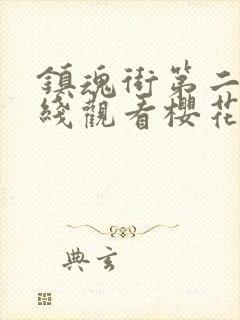 鎮魂街第二
綫觀看櫻花
典玄